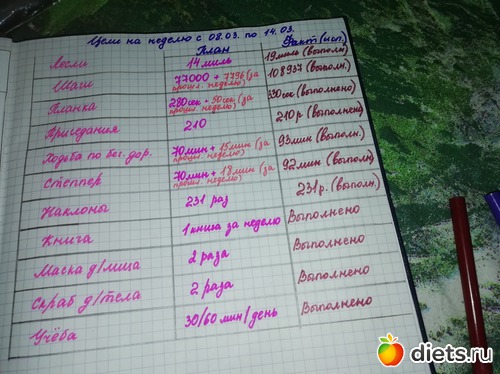 Цели на неделю с 08.03. по 14.03.
План Факт (исп.)
Лесли 14 миль 19 миль (выполн)
Шаги 77000 + 7796 (за прошл. неделю) 108937 (выполн.)
Планка 280 сек + 50 сек (за прошл. неделю) 330 сек (выполнено)
Приседания 210 210 р (выполнено)
Ходьба по бег. дор. 70 мин + 15 мин (за прошл. неделю) 93 мин (выполн.)
Степпер 70 мин + 18 мин (за прошл. неделю) 92 мин (выполн)
Наклоны 231 раз 231 р. (выполн.)
Книга 1 книга за неделю Выполнено
Маска д/лица 2 раза Выполнено
Скраб д/тела 2 раза Выполнено
Учёба 30/60 мин/день Выполнено
diets.ru